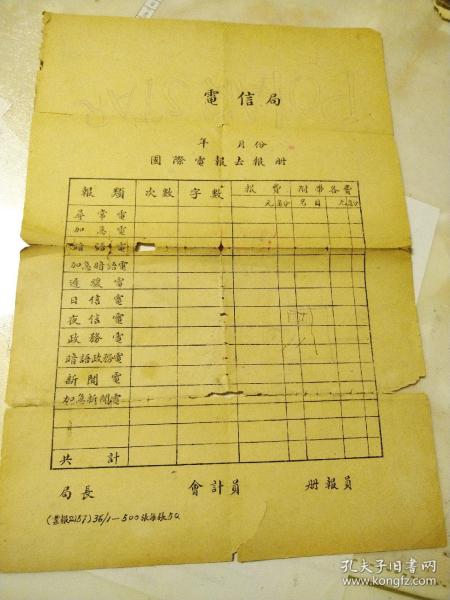 電信局
年 月份
國際電報去報册
報類 次數 字數 報費 附帶各費
元 角分 名目 元 角分
尋常電
加急電
暗語電
加急暗語電
遲緩電
日信電
夜信電
政務電
暗語政務電
新聞電
加急新聞電
共計
局長 會計員 册報員
36/1—500張
孔夫子旧书网
www.kongfz.com